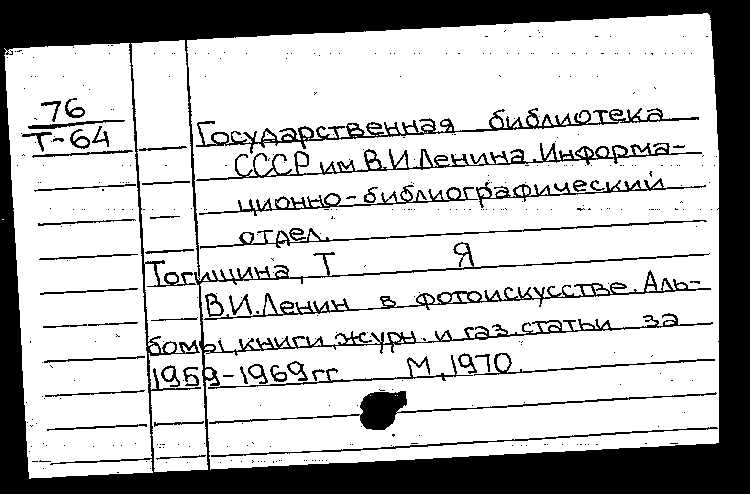 76
Т-64
Государственная библиотека
СССР им.В.И.Ленина.Информа-
ционно-библиографический
отдел.
Тогищина, Т Я
В.И.Ленин в фотоискусстве.Аль-
бомы,книги,журн. и газ.статьи за
1959-1969гг. М,1970.